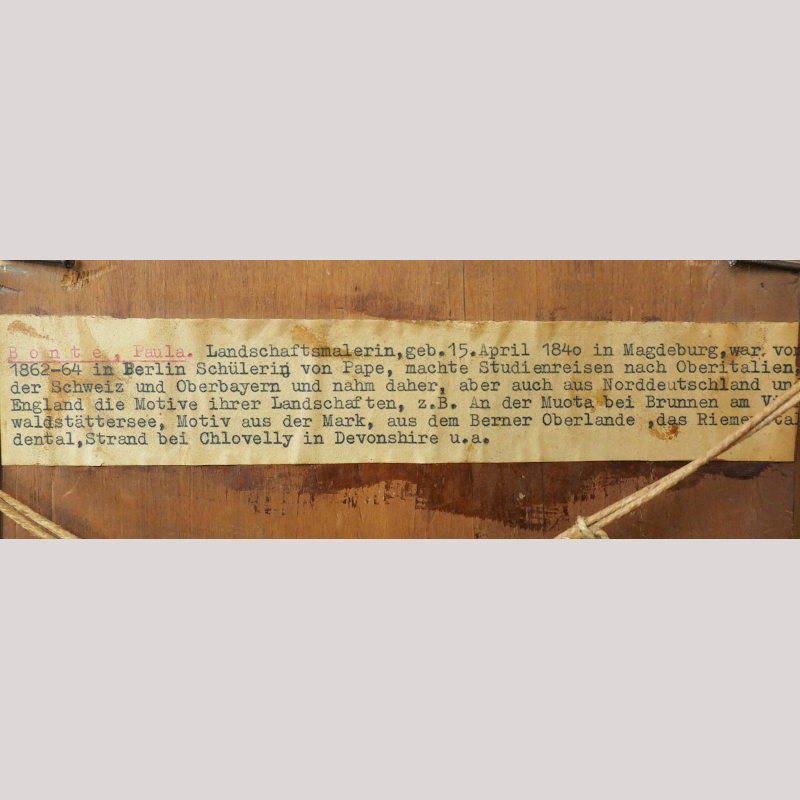 Bonte, Paula. Landschaftsmalerin,geb.15.April 1840 in Magdeburg,war vor
1862-64 in Berlin Schülerin von Pape, machte Studienreisen nach Oberitalien,
der Schweiz und Oberbayern und nahm daher, aber auch aus Norddeutschland un
England die Motive ihrer Landschaften, z.B. An der Muota bei Brunnen am
waldstättersee, Motiv aus der Mark, aus dem Berner Oberlande ,das
dental,Strand bei Chlovelly in Devonshire u.a.